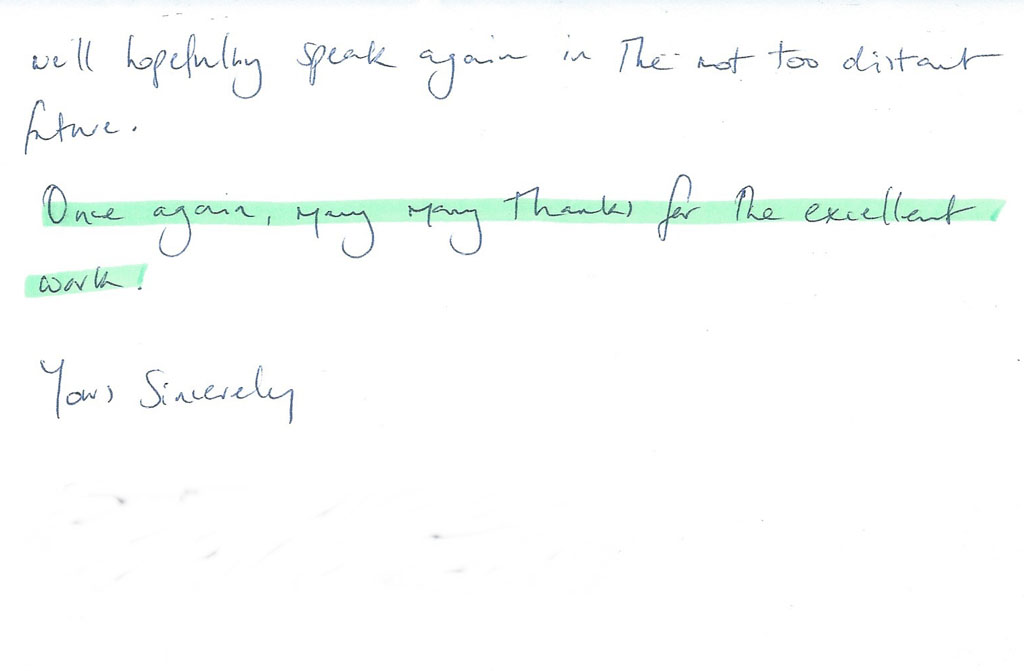 we'll hopefully speak again in the not too distant
future.
Once again, many many thanks for the excellent
work!
Yours Sincerely